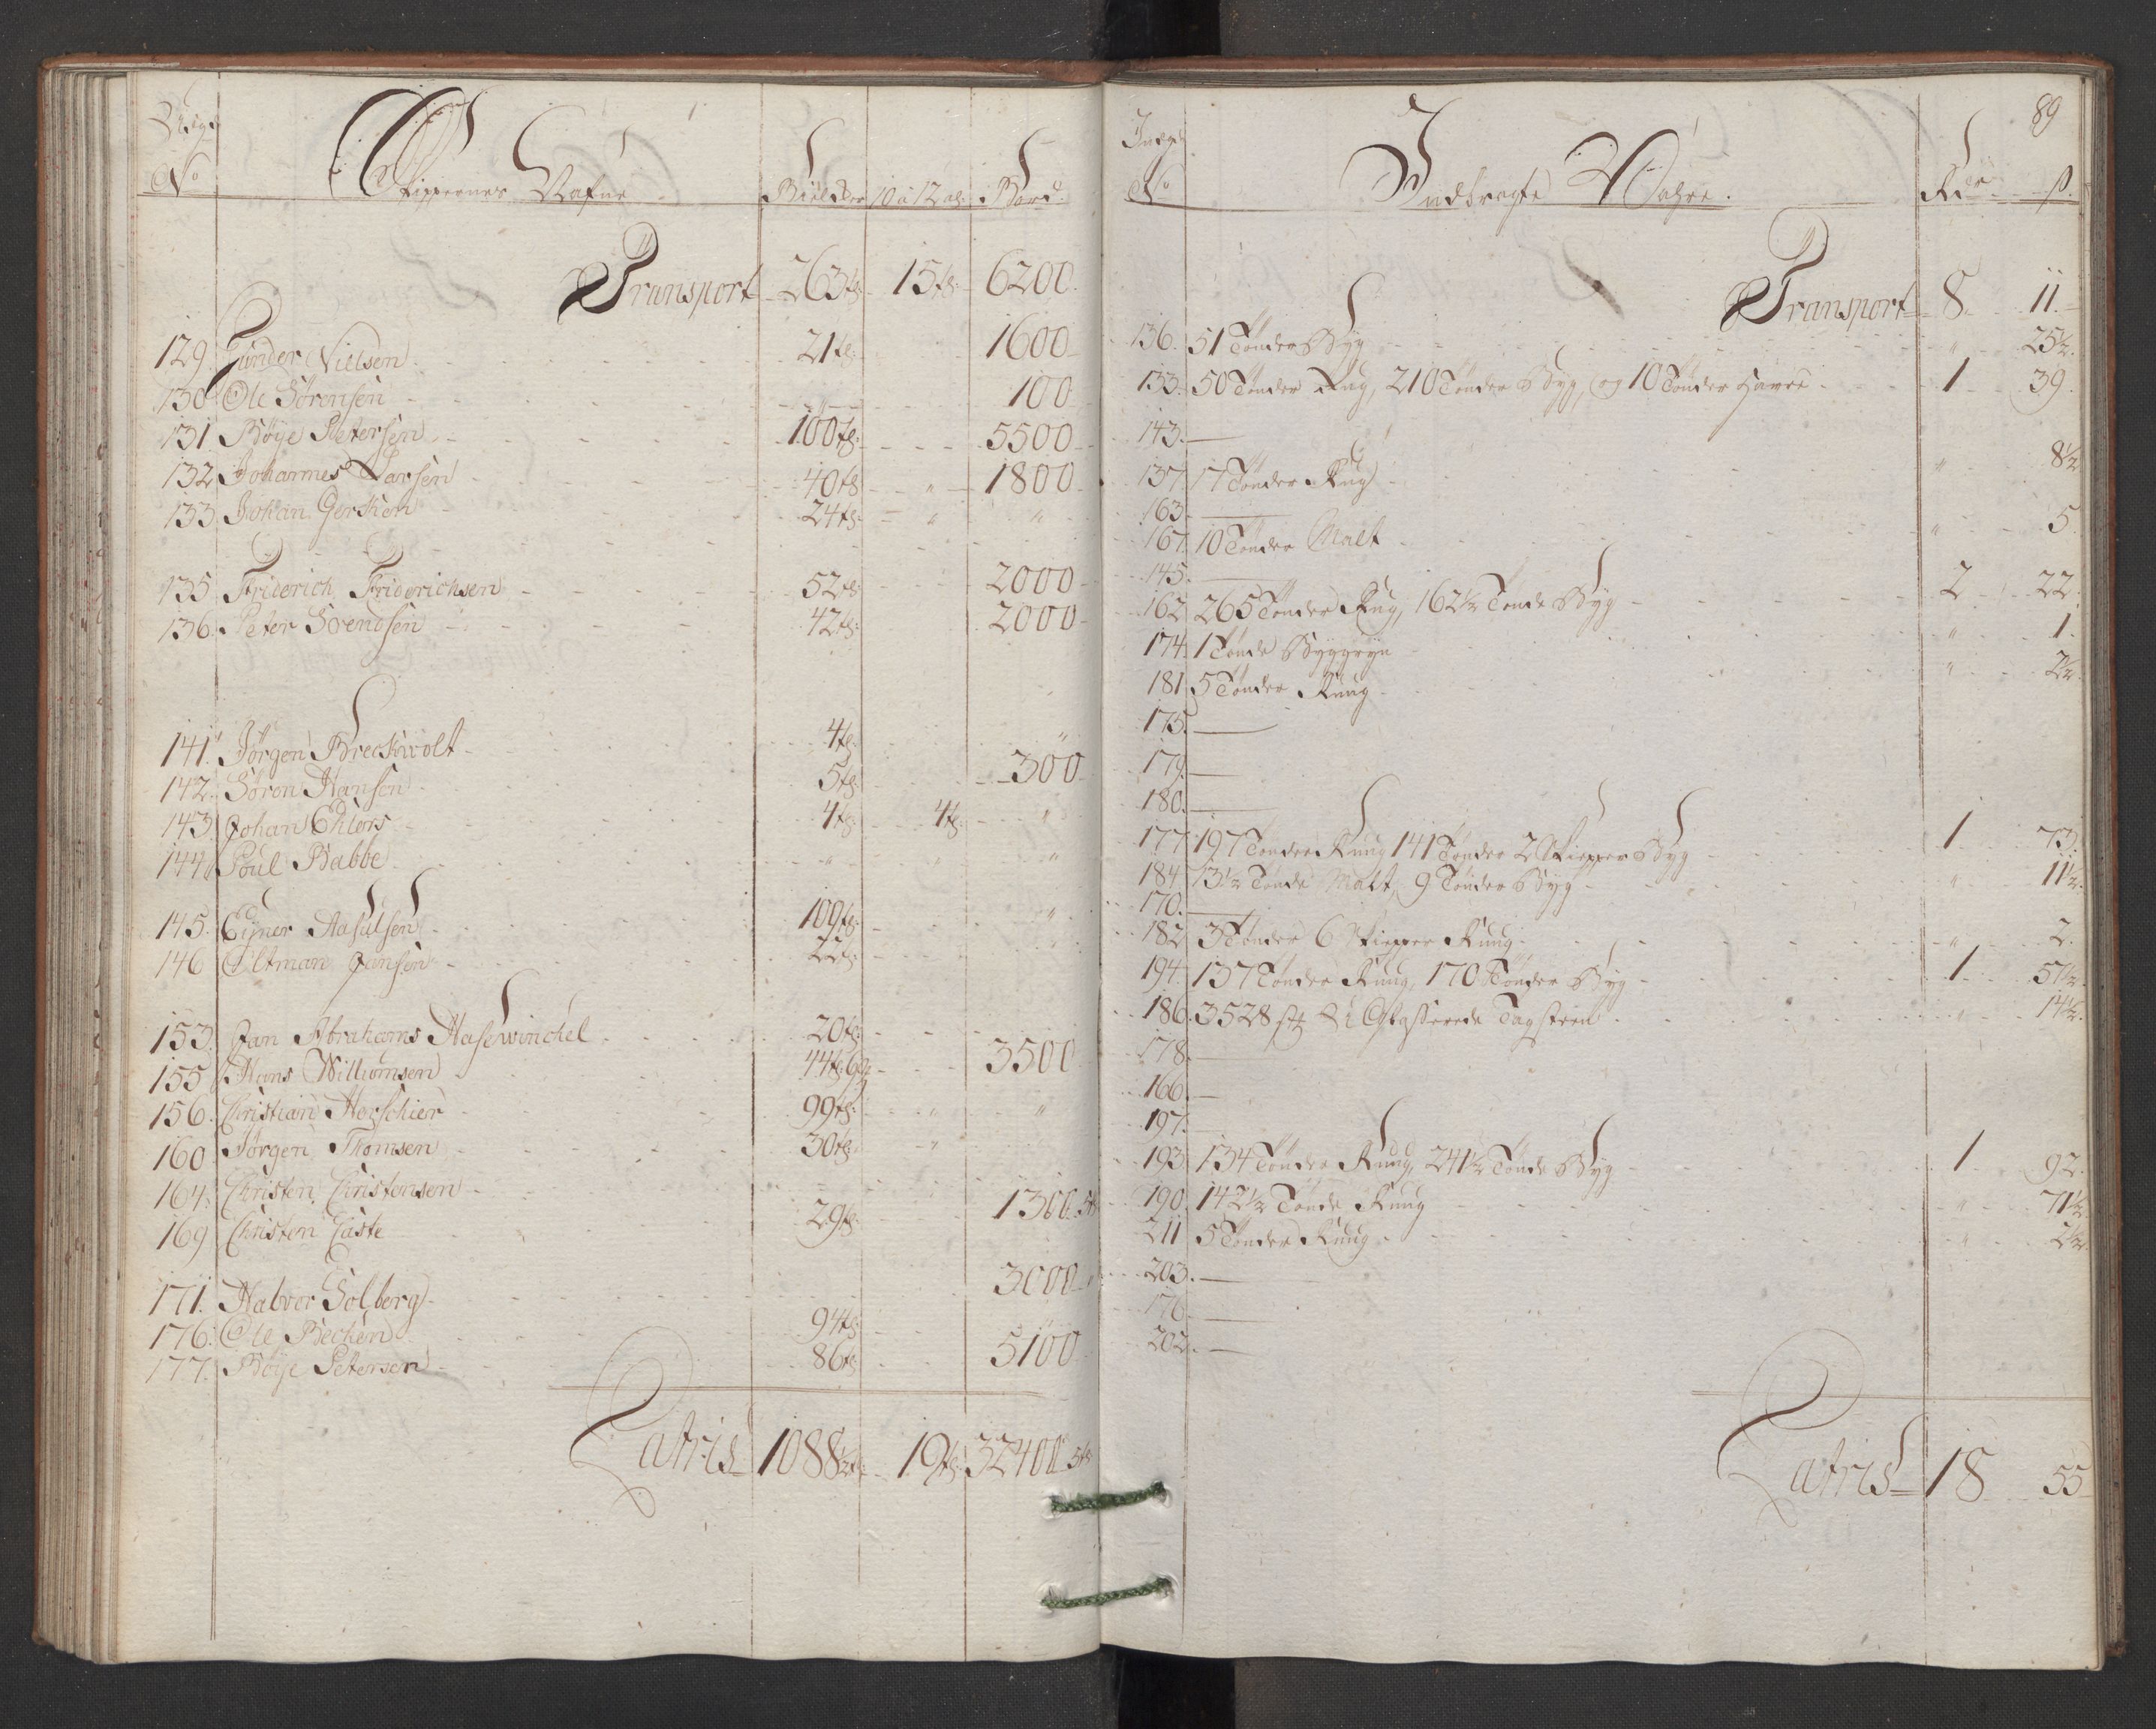 Udg:
No Skippernes Nafne Bielker 10 a 12 al: Bord.
Transport 263 tt: 15 tt: 6200.
129. Gunder Nielsen 21 tt: 1600
130 Ole Sörensen 100
131. Böije Petersen 100 tt: 5500
132 Johannes Larsen 40 tt " 1800
133. Johan Gerken 24 tt: " "
135 Friderich Friderichsen 52 tt 2000
136. Peter Svendsen 42 tt: 2000
141. Jörgen Breckwolt 4 tt: "
142. Sören Hansen 5 tt: 300
143. Johan Ehlers 4 tt: 4 tt: "
144. Poul Babbe " " "
145. Ejner Aasulsen 109 tt: "
146 Oltman Jansen 22 tt: "
153. Jan Abrahams Hasewinchel 20 tt:
155 Hans Willumsen 44 tt: 3500
156. Christian Herschier 99 tt: " "
160 Jörgen Thomsen 30 tt: "
164. Christen Christensen 1366.
169 Christen Gaste 29 tt:
171. Halvor Solberg 3000
176. Ole Becken 94 tt:
177. Böije Petersen 86 tt: 5100
Latris 1088½ tt: 19 tt: 32400
89
Indg:
No Indbragte Vahre. Rdr ß.
Transport 8 11.
136. 51 Tönder Byg " 25½.
133. 50 Tönder Rug, 210 Tönder Byg, og 10 Tönder Havre 1 39.
143. —
137 17 Tönder Rug " 8½
163. —
167. 10 Tönder Malt " 5
145. —
162 265 Tönder Rug, 162½ Tönde Byg 2 22.
174. 1 Tönde Byggryn " 1.
181. 5 Tönder Rung " 2½
175. —
179. —
180. —
177. 197 Tönder Rung 141 Tönder 2 Skiepper Byg 1 73.
184. 13½ Tönde Malt, 9 Tönder Byg " 11½.
170. —
182 3 Tönder 6 Skiepper Rung " 2.
194. 137 Tönder Rung, 170 Tönder Byg 1 57½
186. 3528 st: Glasserede Tagsteen " 14½.
178. —
166. —
197. —
193. 134 Tönder Rung, 241½ Tönde Byg 1 92.
190. 142½ Tönde Rung " 71½.
211 5 Tönder Rung " 2½.
203. —
176. —
202. —
Latris 18 55